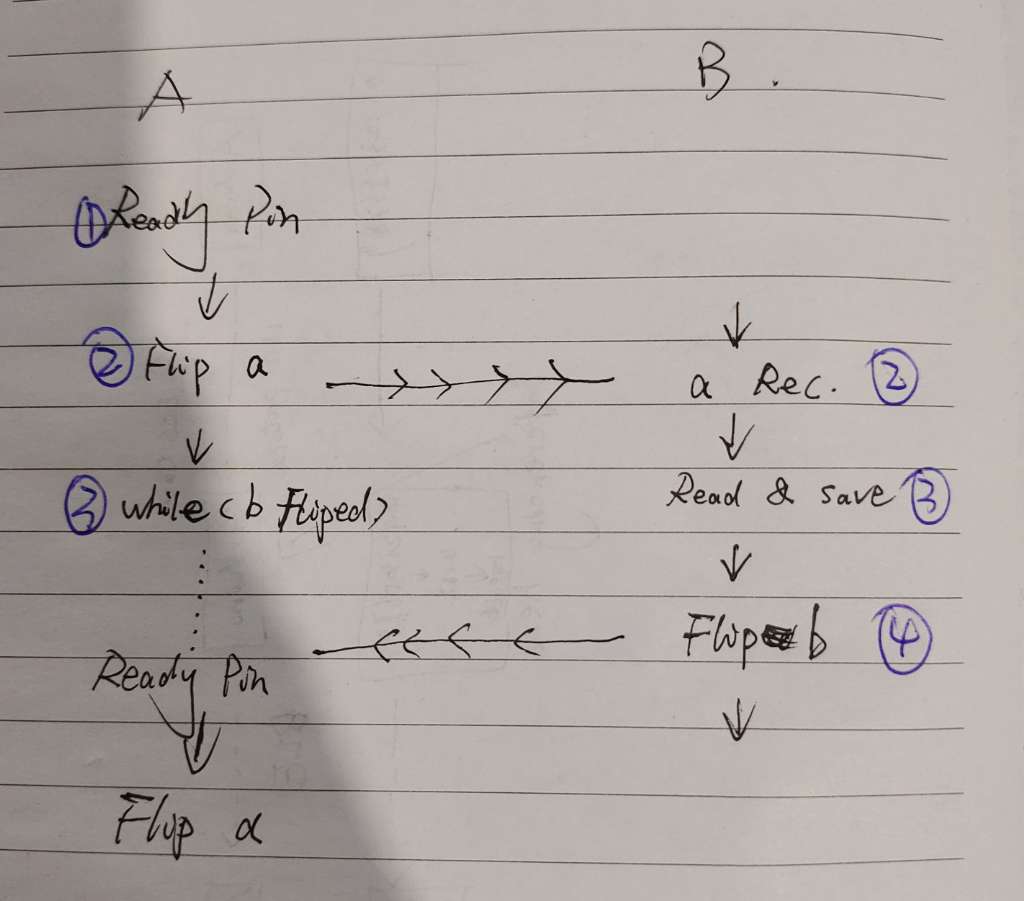 A B.
① Ready Pin
② Flip a a Rec. ②
③ while (b Fliped) Read & save ③
Flip b ④
Ready Pin
Flip a